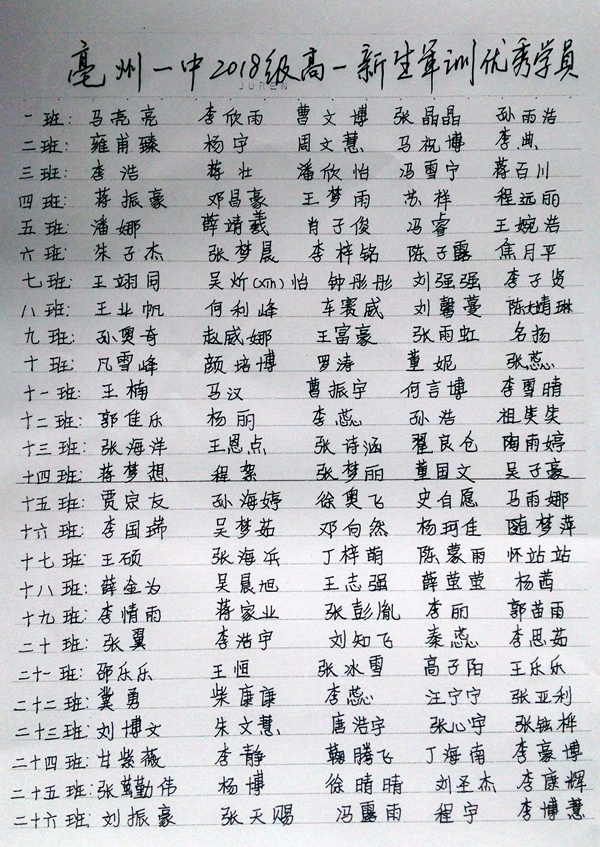 亳州一中2018级高一新生军训优秀学员
JUREN
一班: 马亮亮 李欣雨 曹文博 张晶晶 孙雨浩
二班: 雍甫臻 杨宇 周文慧 马祝博 李典
三班: 李浩 蒋壮 潘欣怡 冯雪宁 蒋百川
四班: 蒋振豪 邓昌豪 王梦雨 苏样 程远丽
五班: 潘娜 薛靖羲 肖子俊 冯睿 王婉浩
六班: 朱子杰 张梦晨 李梓铭 陈子露 焦月平
七班: 王翊同 吴炘(xin)怡 钟彤彤 刘强强 李子贤
八班: 王业帆 何利峰 车赛威 刘馨蔓 陈婧琳
九班: 孙奥奇 赵威娜 王富豪 张雨虹 名扬
十班: 凡雪峰 颜培博 罗涛 董妮 张蕊
十一班: 王楠 马汉 曹振宇 何言博 李雪晴
十二班: 郭佳乐 杨丽 李蕊 孙浩 祖笑笑
十三班: 张海洋 王恩点 张诗涵 翟良仓 陶雨婷
十四班: 蒋梦想 程絮 张梦丽 董国文 吴子豪
十五班: 贾宗友 孙海婷 徐奥飞 史自愿 马雨娜
十六班: 李国瑞 吴梦茹 邓向然 杨珂佳 随梦萍
十七班: 王硕 张海浜 丁梓萌 陈蒙丽 怀站站
十八班: 薛金为 吴晨旭 王志强 薛莹莹 杨茜
十九班: 李情雨 蒋家业 张彭胤 李丽 郭苗雨
二十班: 张翼 李浩宇 刘知飞 秦蕊 李思茹
二十一班: 邵乐乐 王恒 张冰雪 高子阳 王乐乐
二十二班: 冀勇 柴康康 李蕊 汪宁宁 张亚利
二十三班: 刘博文 朱文慧 唐浩宇 张心宇 张铉桦
二十四班: 甘紫薇 李静 鞠腾飞 丁海南 李豪博
二十五班: 张勤伟 杨博 徐晴晴 刘圣杰 李康辉
二十六班: 刘振豪 张天赐 冯露雨 程宇 李博慧